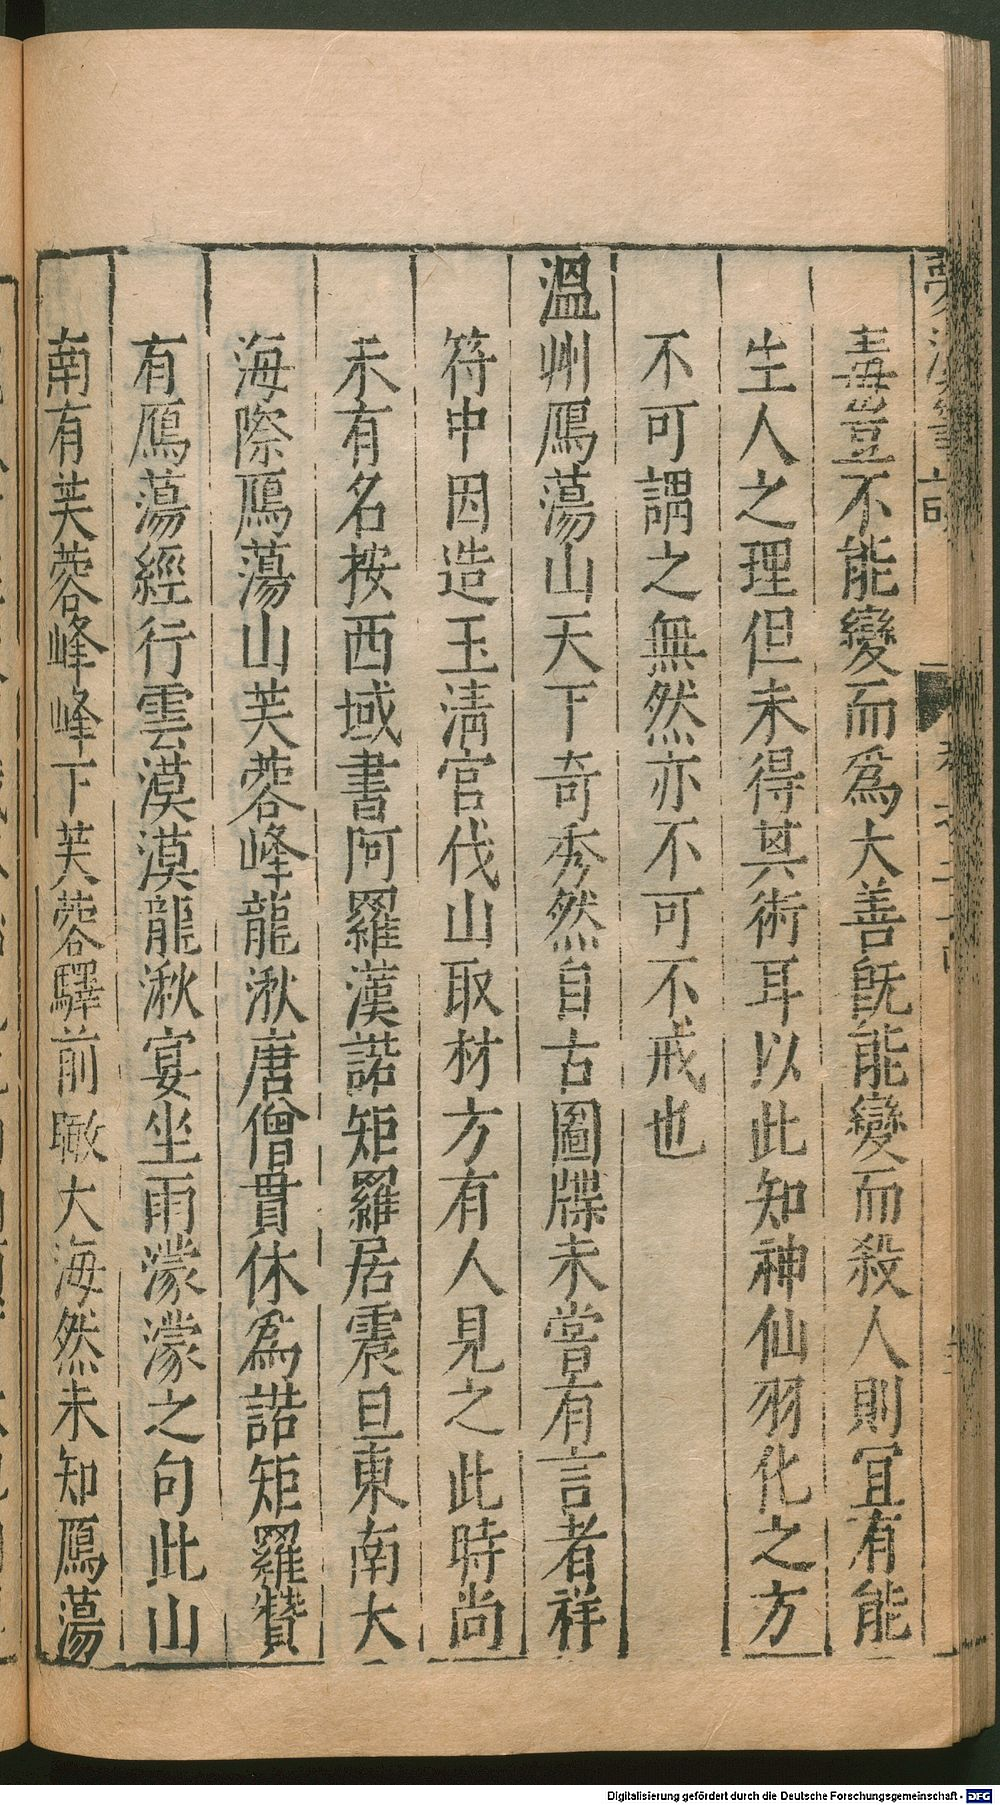 毒豈不能變而為大善旣能變而殺人則宜有能
生人之理但未得其術耳以此知神仙羽化之方
不可謂之無然亦不可不戒也
溫州鴈蕩山天下奇秀然自古圖牒未嘗有言者祥
符中因造玉清宮伐山取材方有人見之此時尚
未有名按西域書阿羅漢諾矩羅居震旦東南大
海際鴈蕩山芙蓉峰龍湫唐僧貫休為諾矩羅贊
有鴈蕩經行雲漠漠龍湫宴坐雨濛濛之句此山
南有芙蓉峰峰下芙蓉驛前瞰大海然未知鴈蕩
Digitalisierung gefördert durch die Deutsche Forschungsgemeinschaft - DFG